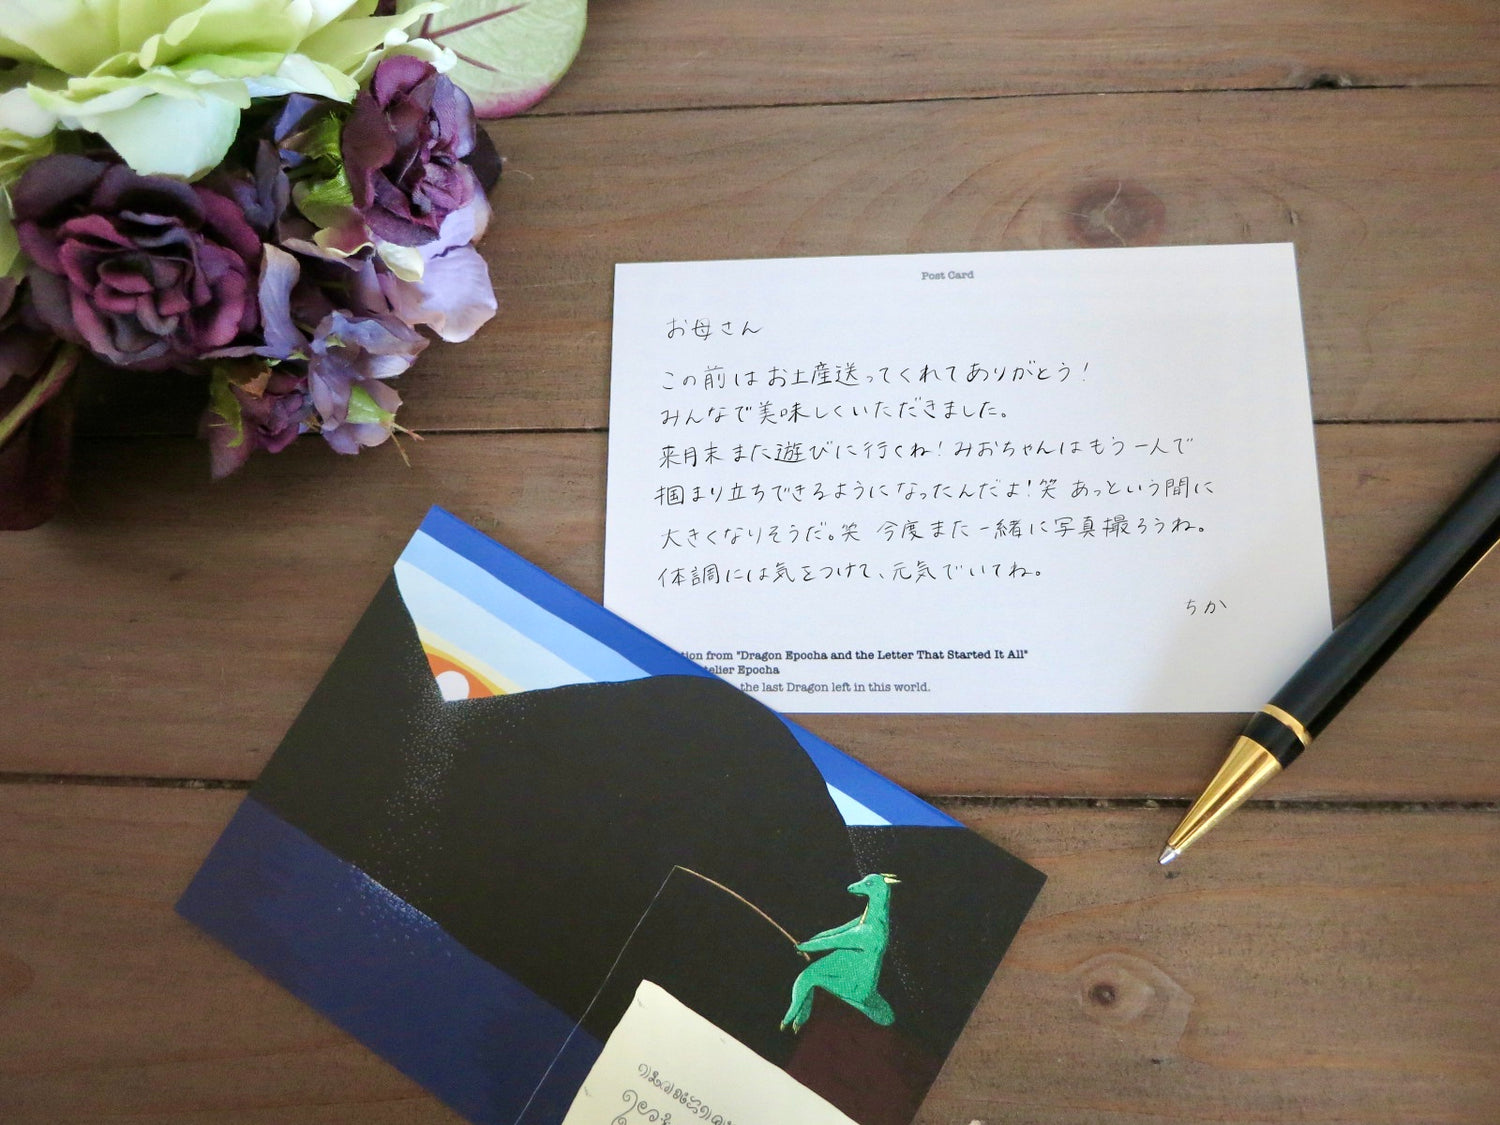 Post Card
お母さん
この前はお土産送ってくれてありがとう!
みんなで美味しくいただきました。
来月末また遊びに行くね!みおちゃんはもう一人で
掴まり立ちできるようになったんだよ!笑 あっという間に
大きくなりそうだ。笑 今度また一緒に写真撮ろうね。
体調には気をつけて、元気でいてね。
ちか
from "Dragon Epocha and the Letter That Started It All"
Epocha
the last Dragon left in this world.